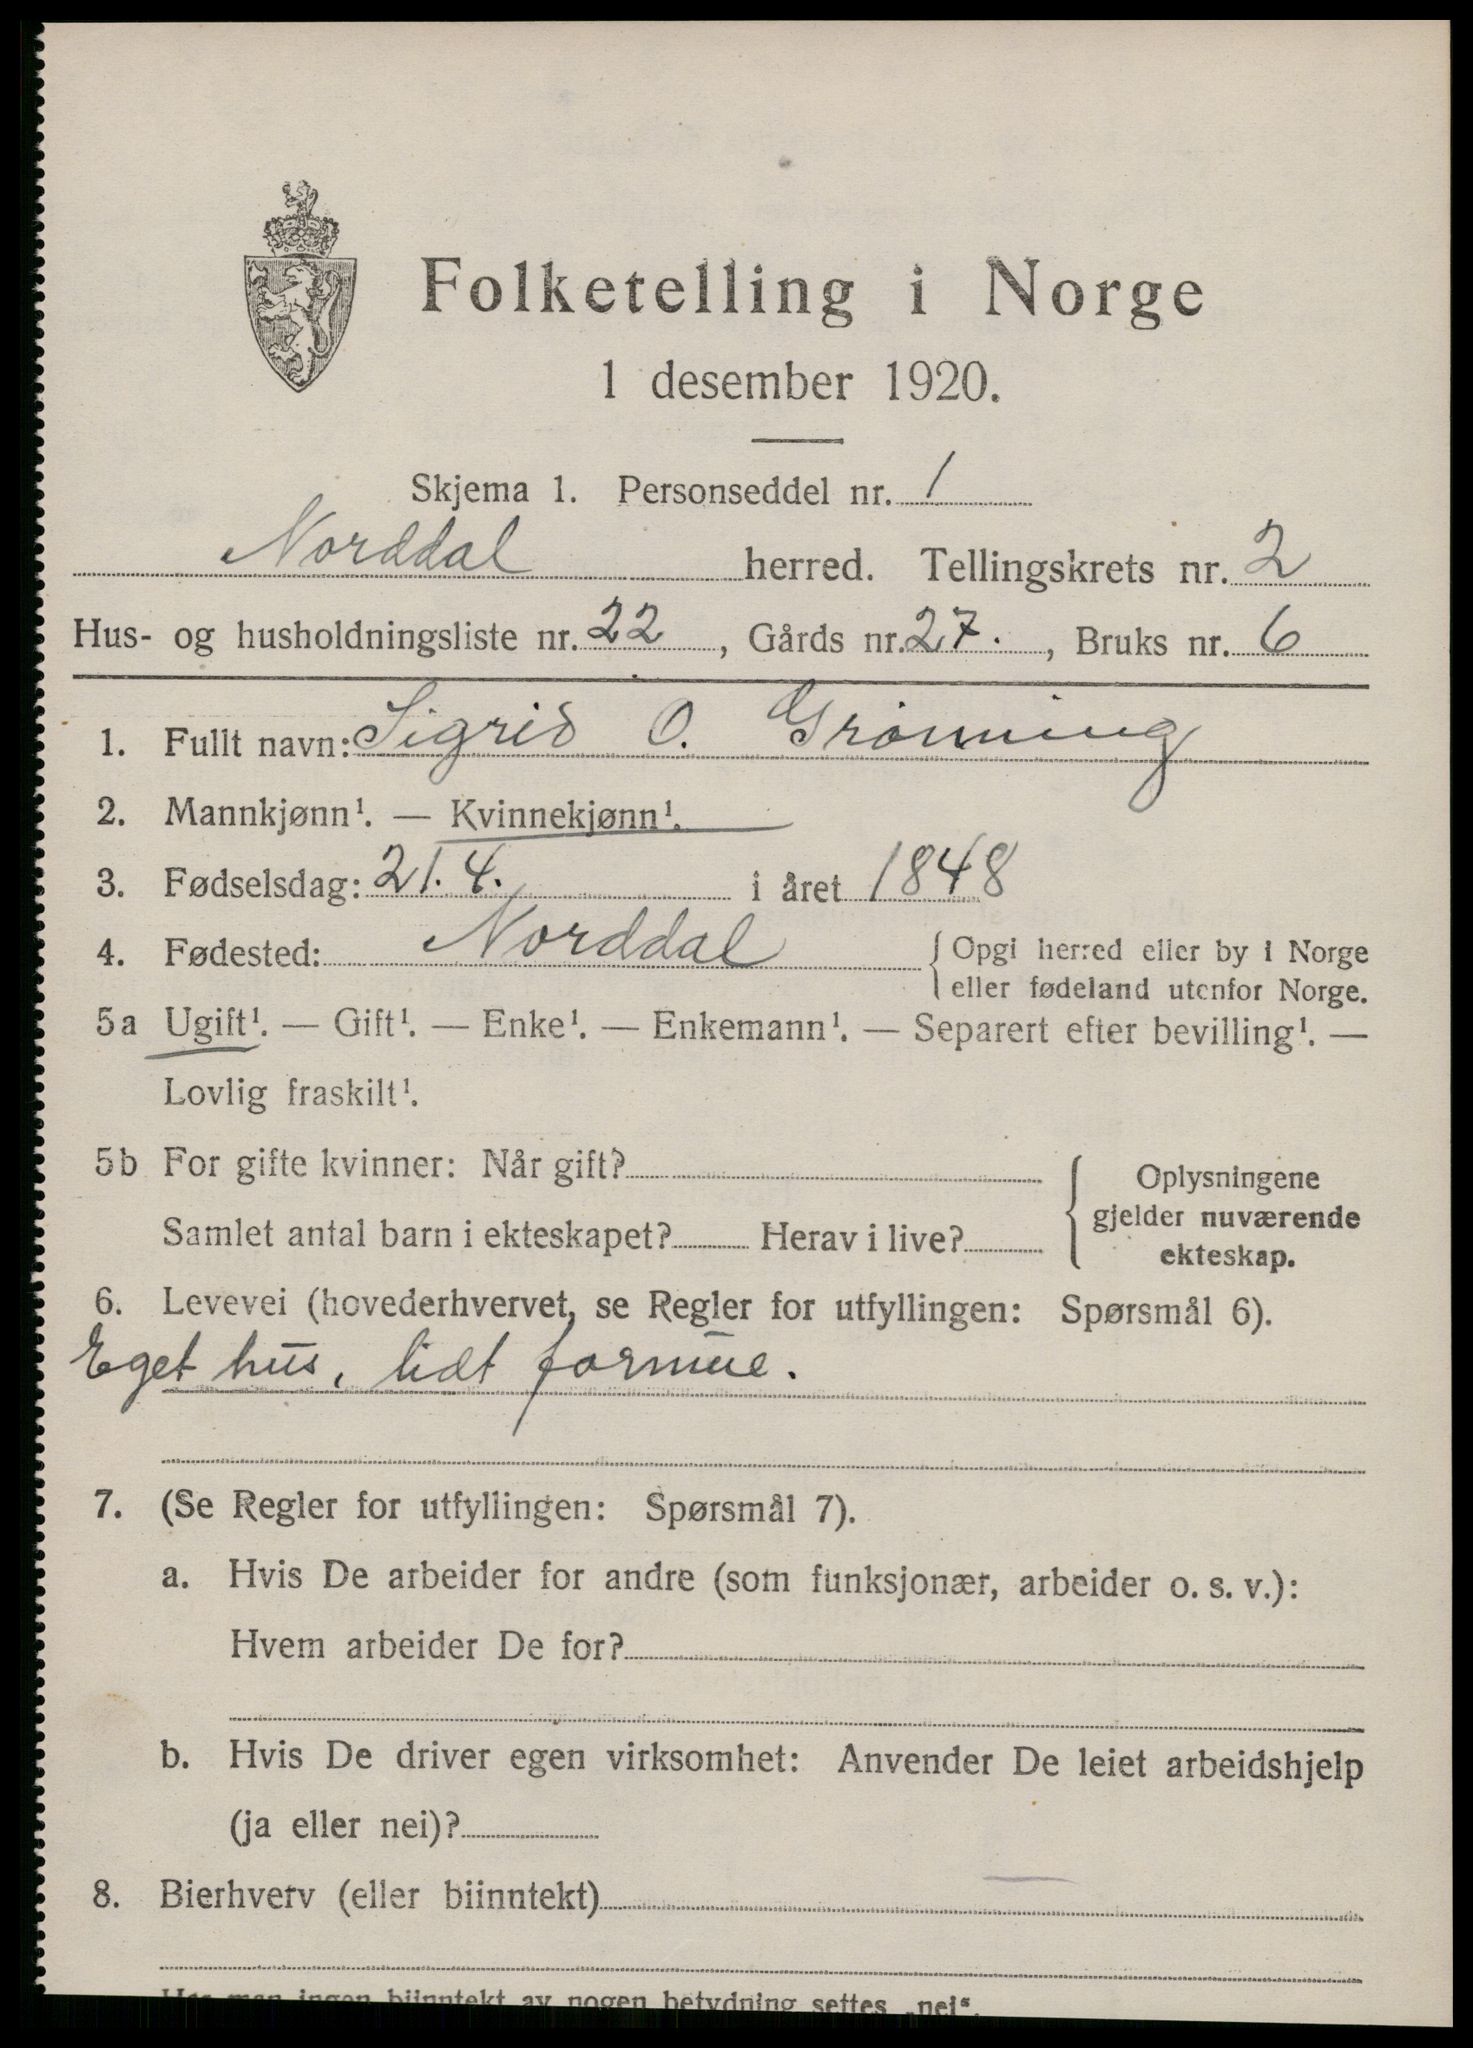 Folketelling i Norge
1 desember 1920.
Skjema 1. Personseddel nr. 1
Norddal herred. Tellingskrets nr. 2
Hus- og husholdningsliste nr. 22, Gårds nr. 27., Bruks nr. 6
1. Fullt navn: Sigrid O. Grönning
2. Mannkjønn¹. — Kvinnekjønn¹.
3. Fødselsdag: 21.4. i året 1848
4. Fødested: Norddal { Opgi herred eller by i Norge
eller fødeland utenfor Norge.
5a Ugift¹. — Gift¹. — Enke¹. — Enkemann¹. — Separert efter bevilling¹. —
Lovlig fraskilt¹.
5b For gifte kvinner: Når gift?
Samlet antal barn i ekteskapet? Herav i live?
{ Oplysningene
gjelder nuværende
ekteskap.
6. Levevei (hovederhvervet, se Regler for utfyllingen: Spørsmål 6).
Eget hus, lidt formue.
7. (Se Regler for utfyllingen: Spørsmål 7).
a. Hvis De arbeider for andre (som funksjonær, arbeider o. s. v.):
Hvem arbeider De for?
b. Hvis De driver egen virksomhet: Anvender De leiet arbeidshjelp
(ja eller nei)?
8. Bierhverv (eller biinntekt) —
Har man ingen biinntekt av nogen betydning settes „nei“.